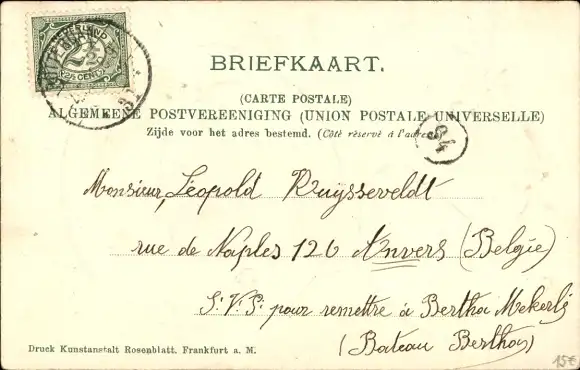 NEDERLAND
2½
2½ CENT
BRIEFKAART.
(CARTE POSTALE)
ALGEMEENE POSTVEREENIGING (UNION POSTALE UNIVERSELLE)
Zijde voor het adres bestemd. (Côté réservé á l'adres
94
Monsieur, Léopold Kruysseveldt
rue de Naples 126 Anvers (Belgie)
S. V. P. pour remettre à Bertha Mekerlé
(Bateau Bertha)
Druck Kunstanstalt Rosenblatt. Frankfurt a. M.
15€